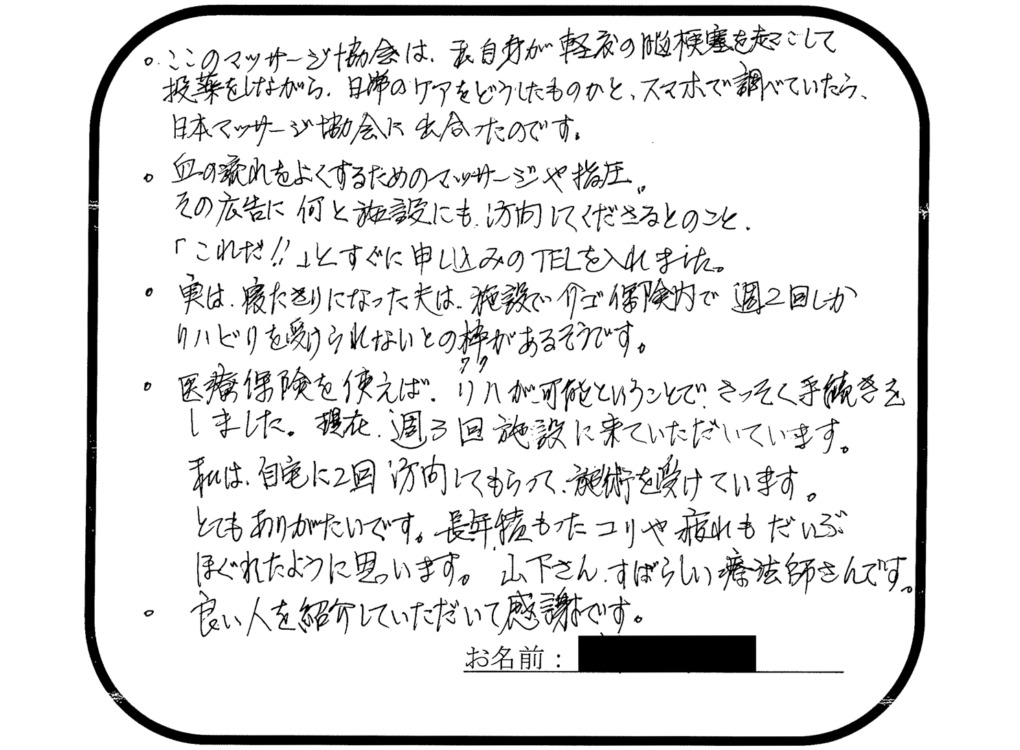 。ここのマッサージ協会は、私自身が軽度の脳梗塞を起こして
投薬をしながら、日常のケアをどうしたものかと、スマホで調べていたら、
日本マッサージ協会に出合ったのです。
。血の流れをよくするためのマッサージや指圧。
その広告に何と施設にも、訪問してくださるとのこと、
「これだ!!」とすぐに申し込みのTELを入れました。
。実は、寝たきりになった夫は、施設でカイゴ保険内で週2回しか
リハビリを受けられないとの枠があるそうです。
ワク
。医療保険を使えば、リハが可能ということで、さっそく手続きを
しました。現在、週3回施設に来ていただいています。
私は、自宅に2回訪問してもらって、施術を受けています。
とてもありがたいです。長年積もったコリや疲れもだいぶ
ほぐれたように思います。山下さん、すばらしい療法師さんです。
。良い人を紹介していただいて感謝です。
お名前：